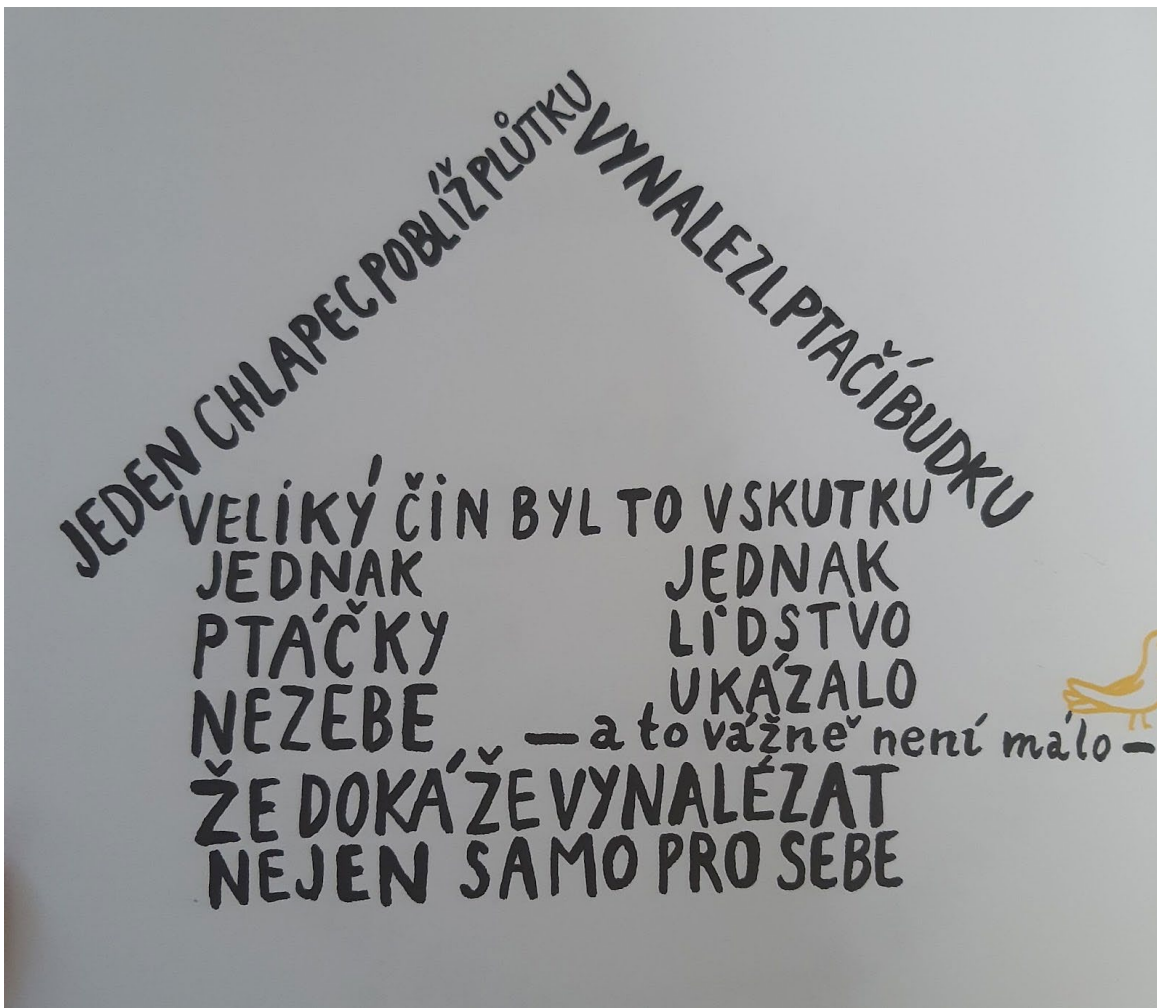 JEDEN CHLAPEC POBLÍŽ PLŮTKU
VYNALEZL PTAČÍ BUDKU
VELIKÝ ČIN BYL TO VSKUTKU
JEDNAK
PTÁČKY
NEZEBE
JEDNAK
LIDSTVO
UKÁZALO
— a to vážně není málo —
ŽE DOKÁŽE VYNALÉZAT
NEJEN SAMO PRO SEBE